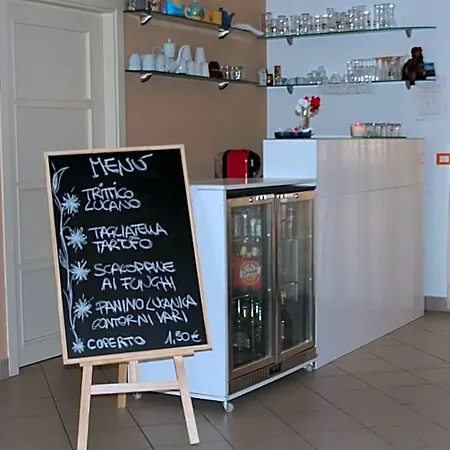 MENU
TRITTICO
LUCANO
TAGLIATELLA
TARTUFO
SCALOPPINE
AI FUNGHI
PANINO LUCANICA
CONTORNI VARI
COPERTO 1,50 €